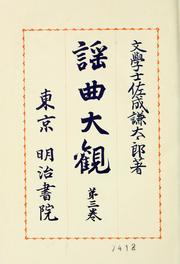 文學士佐成謙太郎著
謡曲大観
第三巻
東京 明治書院
1498